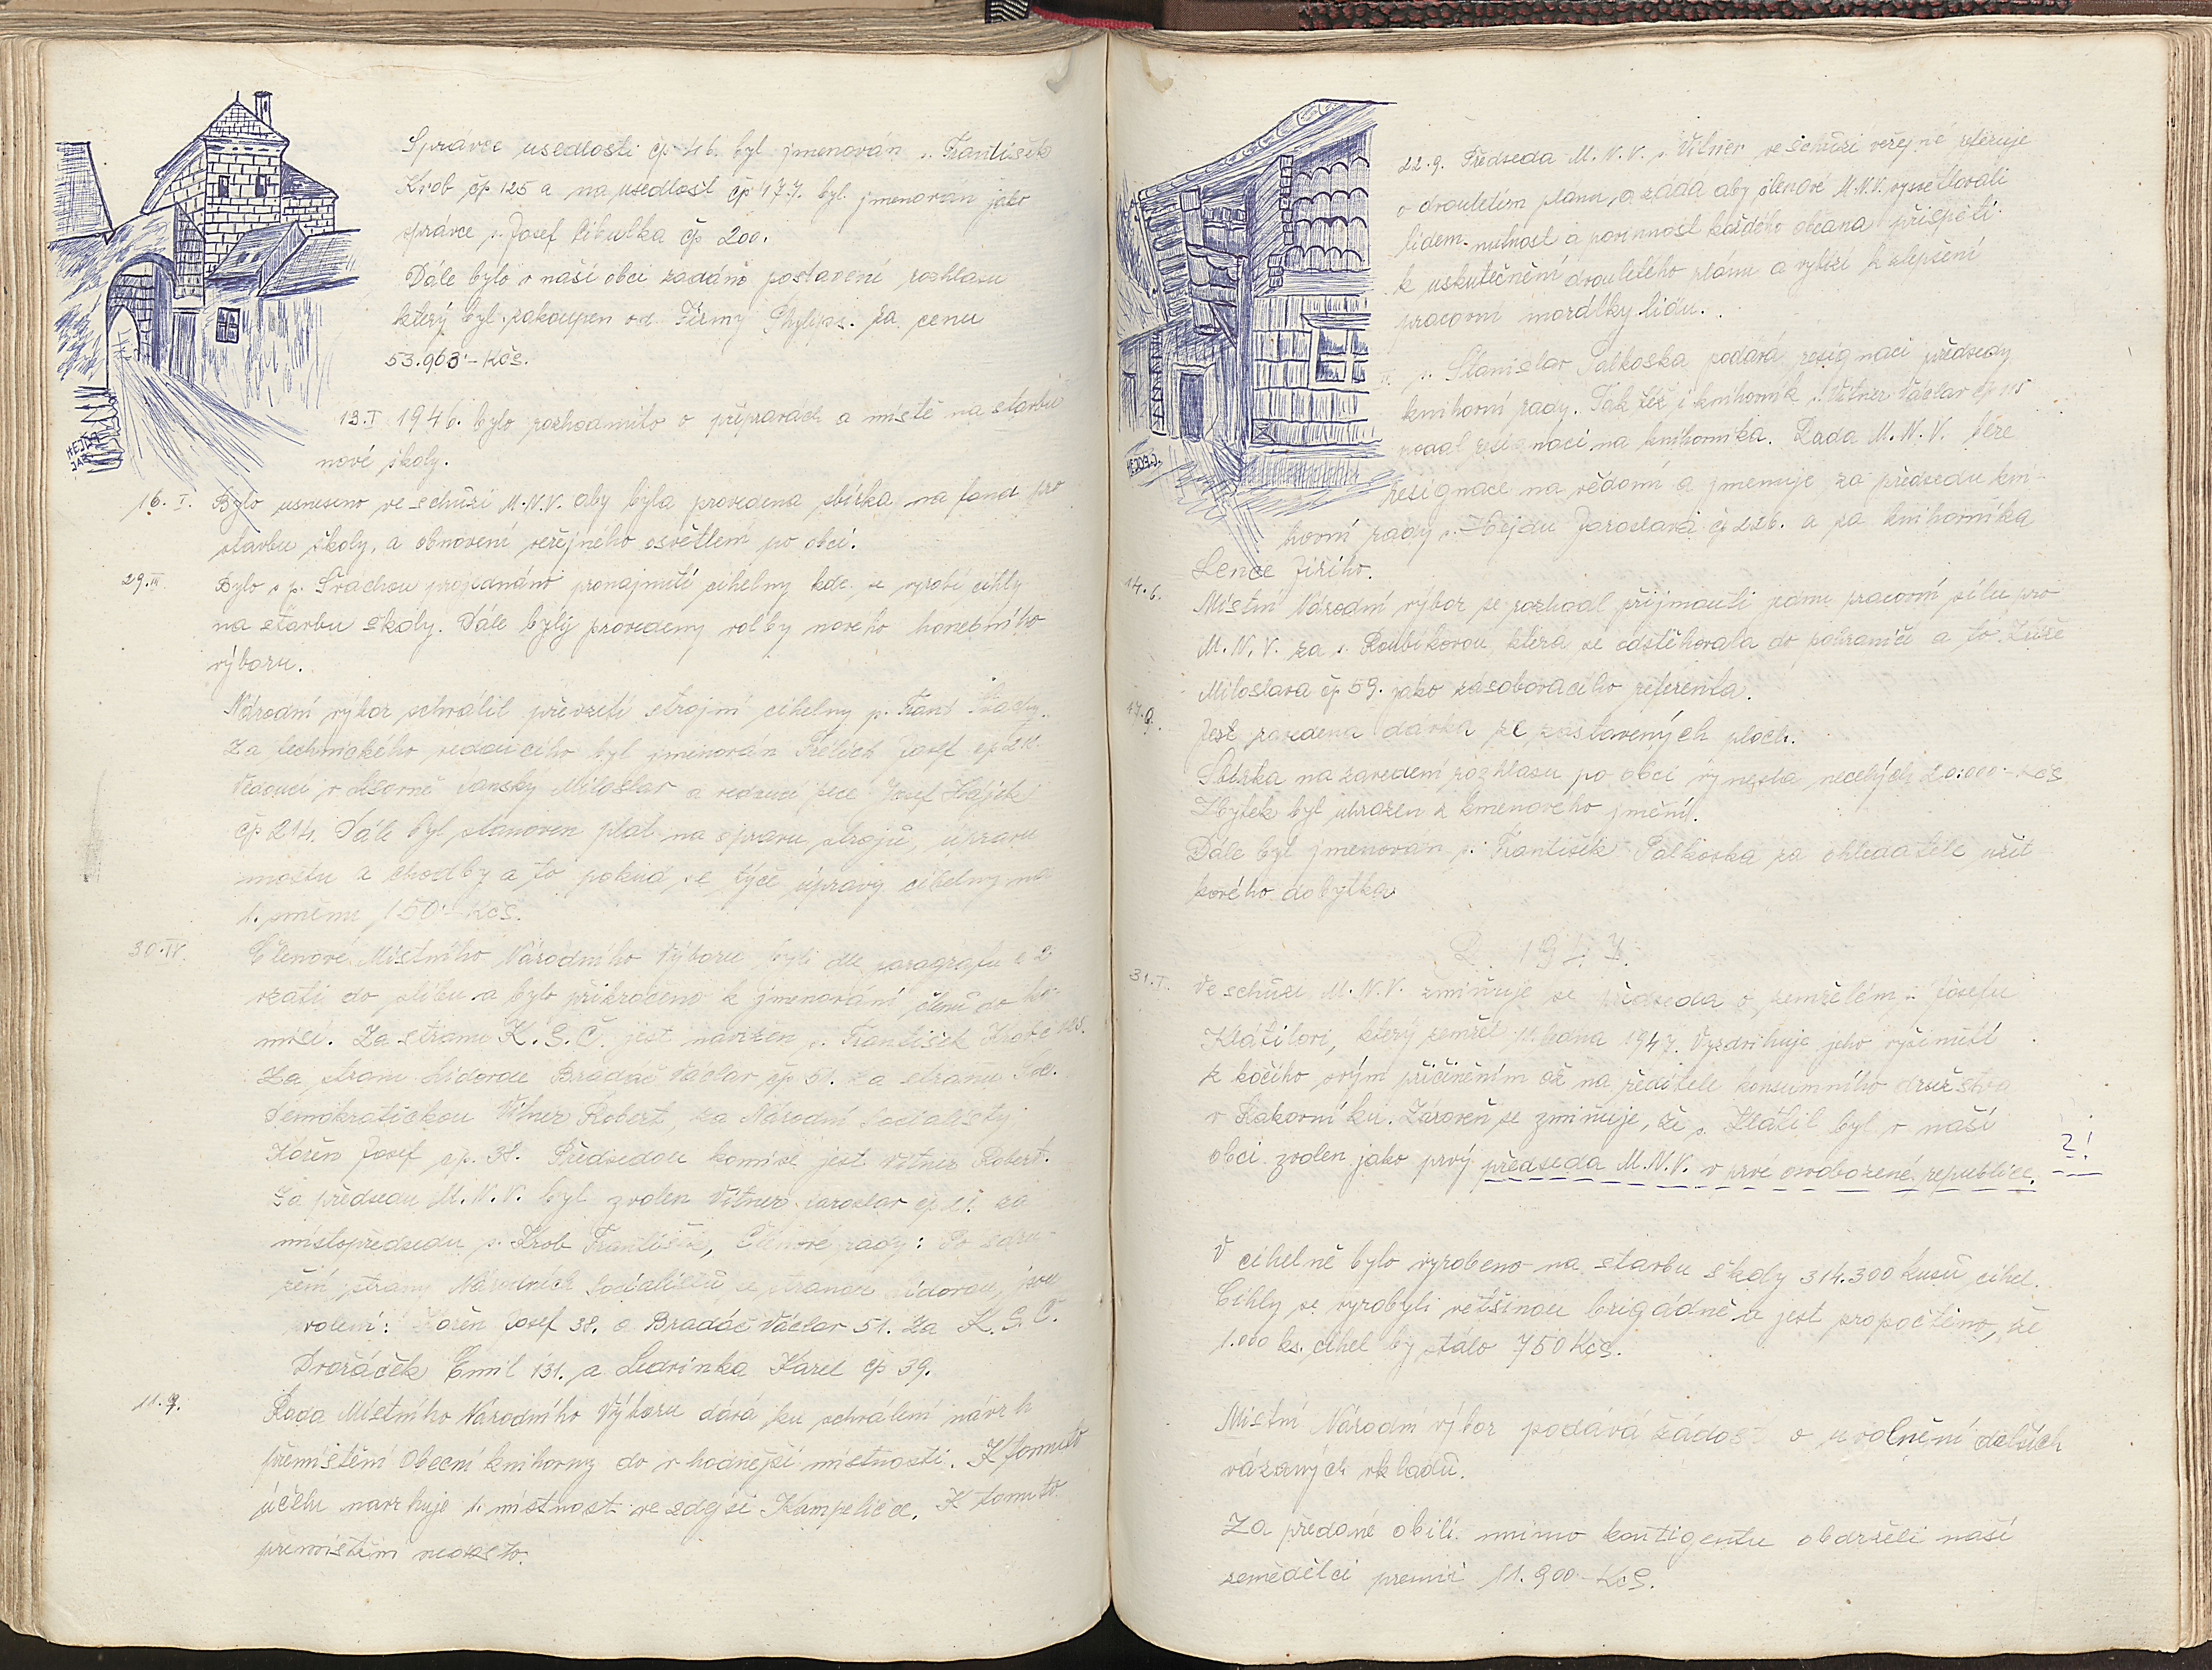 Správce usedlosti čp 46. byl jmenován p. František
Krob čp 125 a na usedlost čp 177. byl jmenován jako
správce p. Josef Cibulka čp 200.
Dále bylo v naší obci zadáno postavení rozhlasu
který byl zakoupen od Firmy Phylips. za cenu
53.963·- Kčs.
HEJDA
JAR.
13.I 1946. bylo rozhodnuto o přípravách a místě na stavbu
nové školy.
16. I. Bylo usneseno ve schůzi M.N.V. aby byla provedena sbírka na fond pro
stavbu školy, a obnovení veřejného osvětlení po obci.
29.III Bylo s p. projednáno pronajmutí cihelny kde se vyrobí cihly
na stavbu školy. Dále byly provedeny volby nového honebního
výboru.
Národní výbor schválil převzetí strojní cihelny p. Frant
Za technického vedoucího byl jmenován Josef čp
Vedoucí v Miloslav a vedoucí pece Josef Hájek
čp 214. Dále byl stanoven plat na opravu strojů, úpravu
mostu a chodby a to pokud se týče úpravy cihelny na
1. směnu 150·- Kčs.
30.IV. Členové Místního Národního Výboru byli dle paragrafu č 2
vzati do slibu a bylo přikročeno k jmenování členů do ko-
misí. Za stranu K.S.Č. jest navržen p. František Krob č 125.
Za stranu Lidovou Bradáč Václav čp 51. za stranu Soc.
Demokratickou Vitner Robert, za Národní Socialisty
Kořen Josef čp. 38. Předsedou komise jest Vitner Robert.
Za předsedu M.N.V. byl zvolen Vitner Jaroslav čp 21. za
místopředsedu p. Krob František, Členové rady: Po sdru-
žení strany Národních Socialistů se stranou lidovou, jsou
zvoleni: Kořen Josef 38. a Bradáč Václav 51. Za K.S.Č.
Dvořáček Emil 131. a Ledvinka Karel čp 39.
11.9. Rada Místního Národního Výboru dává ku schválení návrh
přemístění Obecní knihovny do vhodnější místnosti. K tomuto
účelu navrhuje 1. místnost ve zdejší Kampeličce. K tomuto
přemístění nedošlo.
22.9. Předseda M.N.V. p. Vitner ve schůzi veřejné referuje
o dvouletém plánu, a žádá aby členové M.N.V. vysvětlovali
lidem nutnost a povinnost každého občana přispěti
k uskutečnění dvouletého plánu a vybízí k zlepšení
pracovní morálky lidu.
p. Stanislav Palkoska podává resignaci předsedy
knihovní rady. Tak též i knihovník p. Vitner Václav čp 115
podal resignaci na knihovníka. Rada M.N.V. bere
resignace na vědomí a jmenuje za předsedu kni-
hovní rady p. Hejdu Jaroslava čp 226. a za knihovníka
Lence Jiřího.
HEJDA J.
14.6. Místní Národní výbor se rozhodl přijmouti jednu pracovní sílu pro
M.N.V. za s. Roubíkovou, která se odstěhovala do pohraničí a to
Miloslava čp 59. jako zásobovacího referenta.
17.9. Jest zavedena dávka ze zastavených ploch.
Sbírka na zavedení rozhlasu po obci vynesla necelých 20.000·- Kčs
Zbytek byl uhrazen z kmenového jmění.
Dále byl jmenován p. František Palkoska za ohledatele užit
kového dobytka.
R. 1947.
31.I. Ve schůzi M.N.V. zmiňuje se předseda o zemřelém p. Josefu
Klátilovi, který zemřel 11. ledna 1947. Vyzdvihuje jeho vyšinutí
z kočího svým přičiněním až na ředitele konsumního družstva
v Rakovníku. Zároveň se zmiňuje, že p. Klátil byl v naší
obci zvolen jako prvý předseda M.N.V. v prvé osvobozené republice. ?!
V cihelně bylo vyrobeno na stavbu školy 314.300 kusů cihel.
Cihly se vyrobyli většinou brigádně a jest propočteno, že
1.000 ks. cihel by stálo 750 Kčs.
Místní Národní výbor podává žádost o uvolnění dalších
vázaných vkladů.
Za předané obilí mimo kontigentu obdrželi naší
zemědělci premií 11.900 - Kčs.